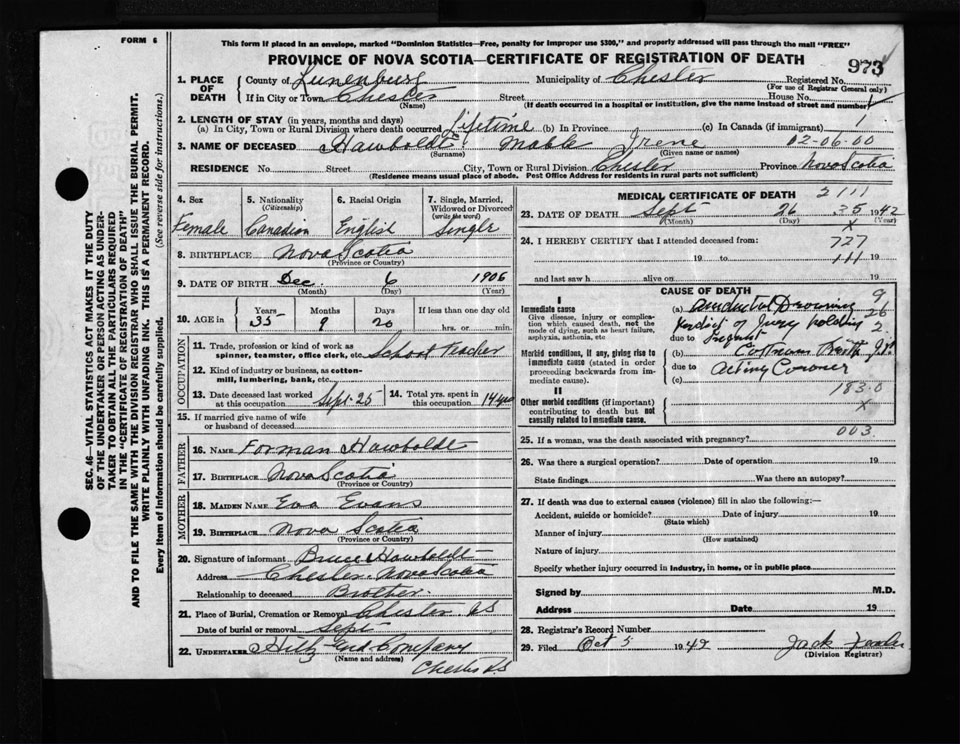 FORM 6
This form if placed in an envelope, marked "Dominion Statistics—Free, penalty for improper use $300," and properly addressed will pass through the mail "FREE"
PROVINCE OF NOVA SCOTIA—CERTIFICATE OF REGISTRATION OF DEATH
973
1. PLACE OF DEATH County of Lunenburg Municipality of Chester Registered No.
(For use of Registrar General only)
If in City or Town Chester Street House No.
(Name) (If death occurred in a hospital or institution, give the name instead of street and number)
2. LENGTH OF STAY (in years, months and days)
(a) In City, Town or Rural Division where death occurred Lifetime (b) In Province (c) In Canada (if immigrant) 1
3. NAME OF DECEASED Hawboldt Mable Irene 02-06.00
(Surname) (Given name or names)
RESIDENCE No. Street City, Town or Rural Division Chester Province Nova Scotia
(Residence means usual place of abode. Post Office Address for residents in rural parts not sufficient)
4. Sex 5. Nationality (Citizenship) 6. Racial Origin 7. Single, Married, Widowed or Divorced (write the word)
Female Canadian English Single
8. BIRTHPLACE Nova Scotia
(Province or Country)
9. DATE OF BIRTH Dec. 6 1906
(Month) (Day) (Year)
10. AGE in Years Months Days If less than one day old
35 9 20 hrs. or min.
OCCUPATION
11. Trade, profession or kind of work as spinner, teamster, office clerk, etc. School Teacher
12. Kind of industry or business, as cotton-mill, lumbering, bank, etc.
13. Date deceased last worked at this occupation Sept-25 14. Total yrs. spent in this occupation 14 yrs
15. If married give name of wife or husband of deceased
FATHER
16. NAME Forman Hawboldt
17. BIRTHPLACE Nova Scotia
(Province or Country)
MOTHER
18. MAIDEN NAME Eva Evans
19. BIRTHPLACE Nova Scotia
(Province or Country)
20. Signature of informant Bruce Hawboldt
Address Chester, Nova Scotia
Relationship to deceased Brother.
21. Place of Burial, Cremation or Removal Chester NS
Date of burial or removal Sept
22. UNDERTAKER Hiltz and Company
(Name and address) Chester NS
MEDICAL CERTIFICATE OF DEATH
23. DATE OF DEATH Sept 26 1942
(Month) (Day) (Year)
24. I HEREBY CERTIFY that I attended deceased from: 727
19 to 111 19
and last saw h alive on 19
CAUSE OF DEATH
I
Immediate cause
Give disease, injury or complication which caused death, not the mode of dying, such as heart failure, asphyxia, asthenia, etc
(a) Accidental Drowning
due to verdict of Jury holding Inquest
Morbid conditions, if any, giving rise to immediate cause (stated in order proceeding backwards from immediate cause).
(b) J.P.
due to Acting Coroner
(c)
183.0
II
Other morbid conditions (if important) contributing to death but not causally related to immediate cause.
003
25. If a woman, was the death associated with pregnancy?
26. Was there a surgical operation? Date of operation 19
State findings Was there an autopsy?
27. If death was due to external causes (violence) fill in also the following:—
Accident, suicide or homicide? Date of injury 19
(State which)
Manner of injury
(How sustained)
Nature of injury
Specify whether injury occurred in industry, in home, or in public place
Signed by M.D.
Address Date 19
28. Registrar's Record Number
29. Filed Oct 5 1942 Jack
(Division Registrar)
SEC. 46—VITAL STATISTICS ACT MAKES IT THE DUTY
OF THE UNDERTAKER OR PERSON ACTING AS UNDERTAKER TO OBTAIN ALL THE PARTICULARS REQUIRED
IN THE "CERTIFICATE OF REGISTRATION OF DEATH"
AND TO FILE THE SAME WITH THE DIVISION REGISTRAR WHO SHALL ISSUE THE BURIAL PERMIT.
WRITE PLAINLY WITH UNFADING INK. THIS IS A PERMANENT RECORD.
Every item of information should be carefully supplied. (See reverse side for instructions.)